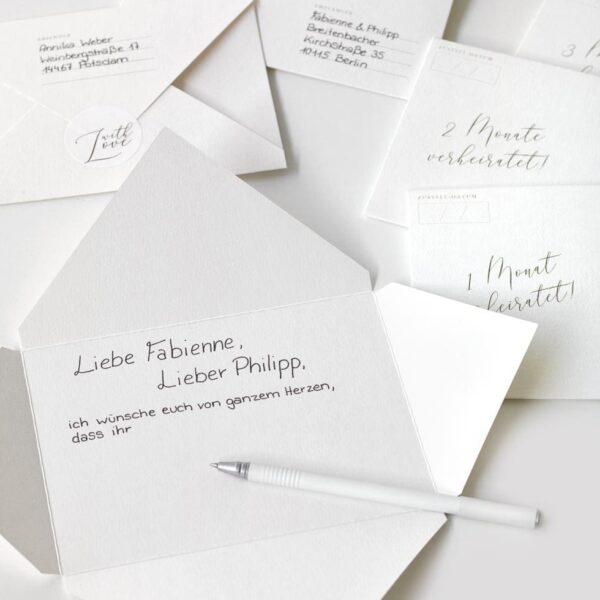 ABSENDER
Annika Weber
Weinbergstraße 17
14467 Potsdam
with
Love
EMPFÄNGER
Fabienne & Philipp
Breitenbacher
Kirchstraße 35
10115 Berlin
3 Mo
ZUSTELL-DATUM
2 Monate
verheiratet!
ZUSTELL-DATUM
1 Monat
heiratet!
Liebe Fabienne,
Lieber Philipp,
ich wünsche euch von ganzem Herzen,
dass ihr